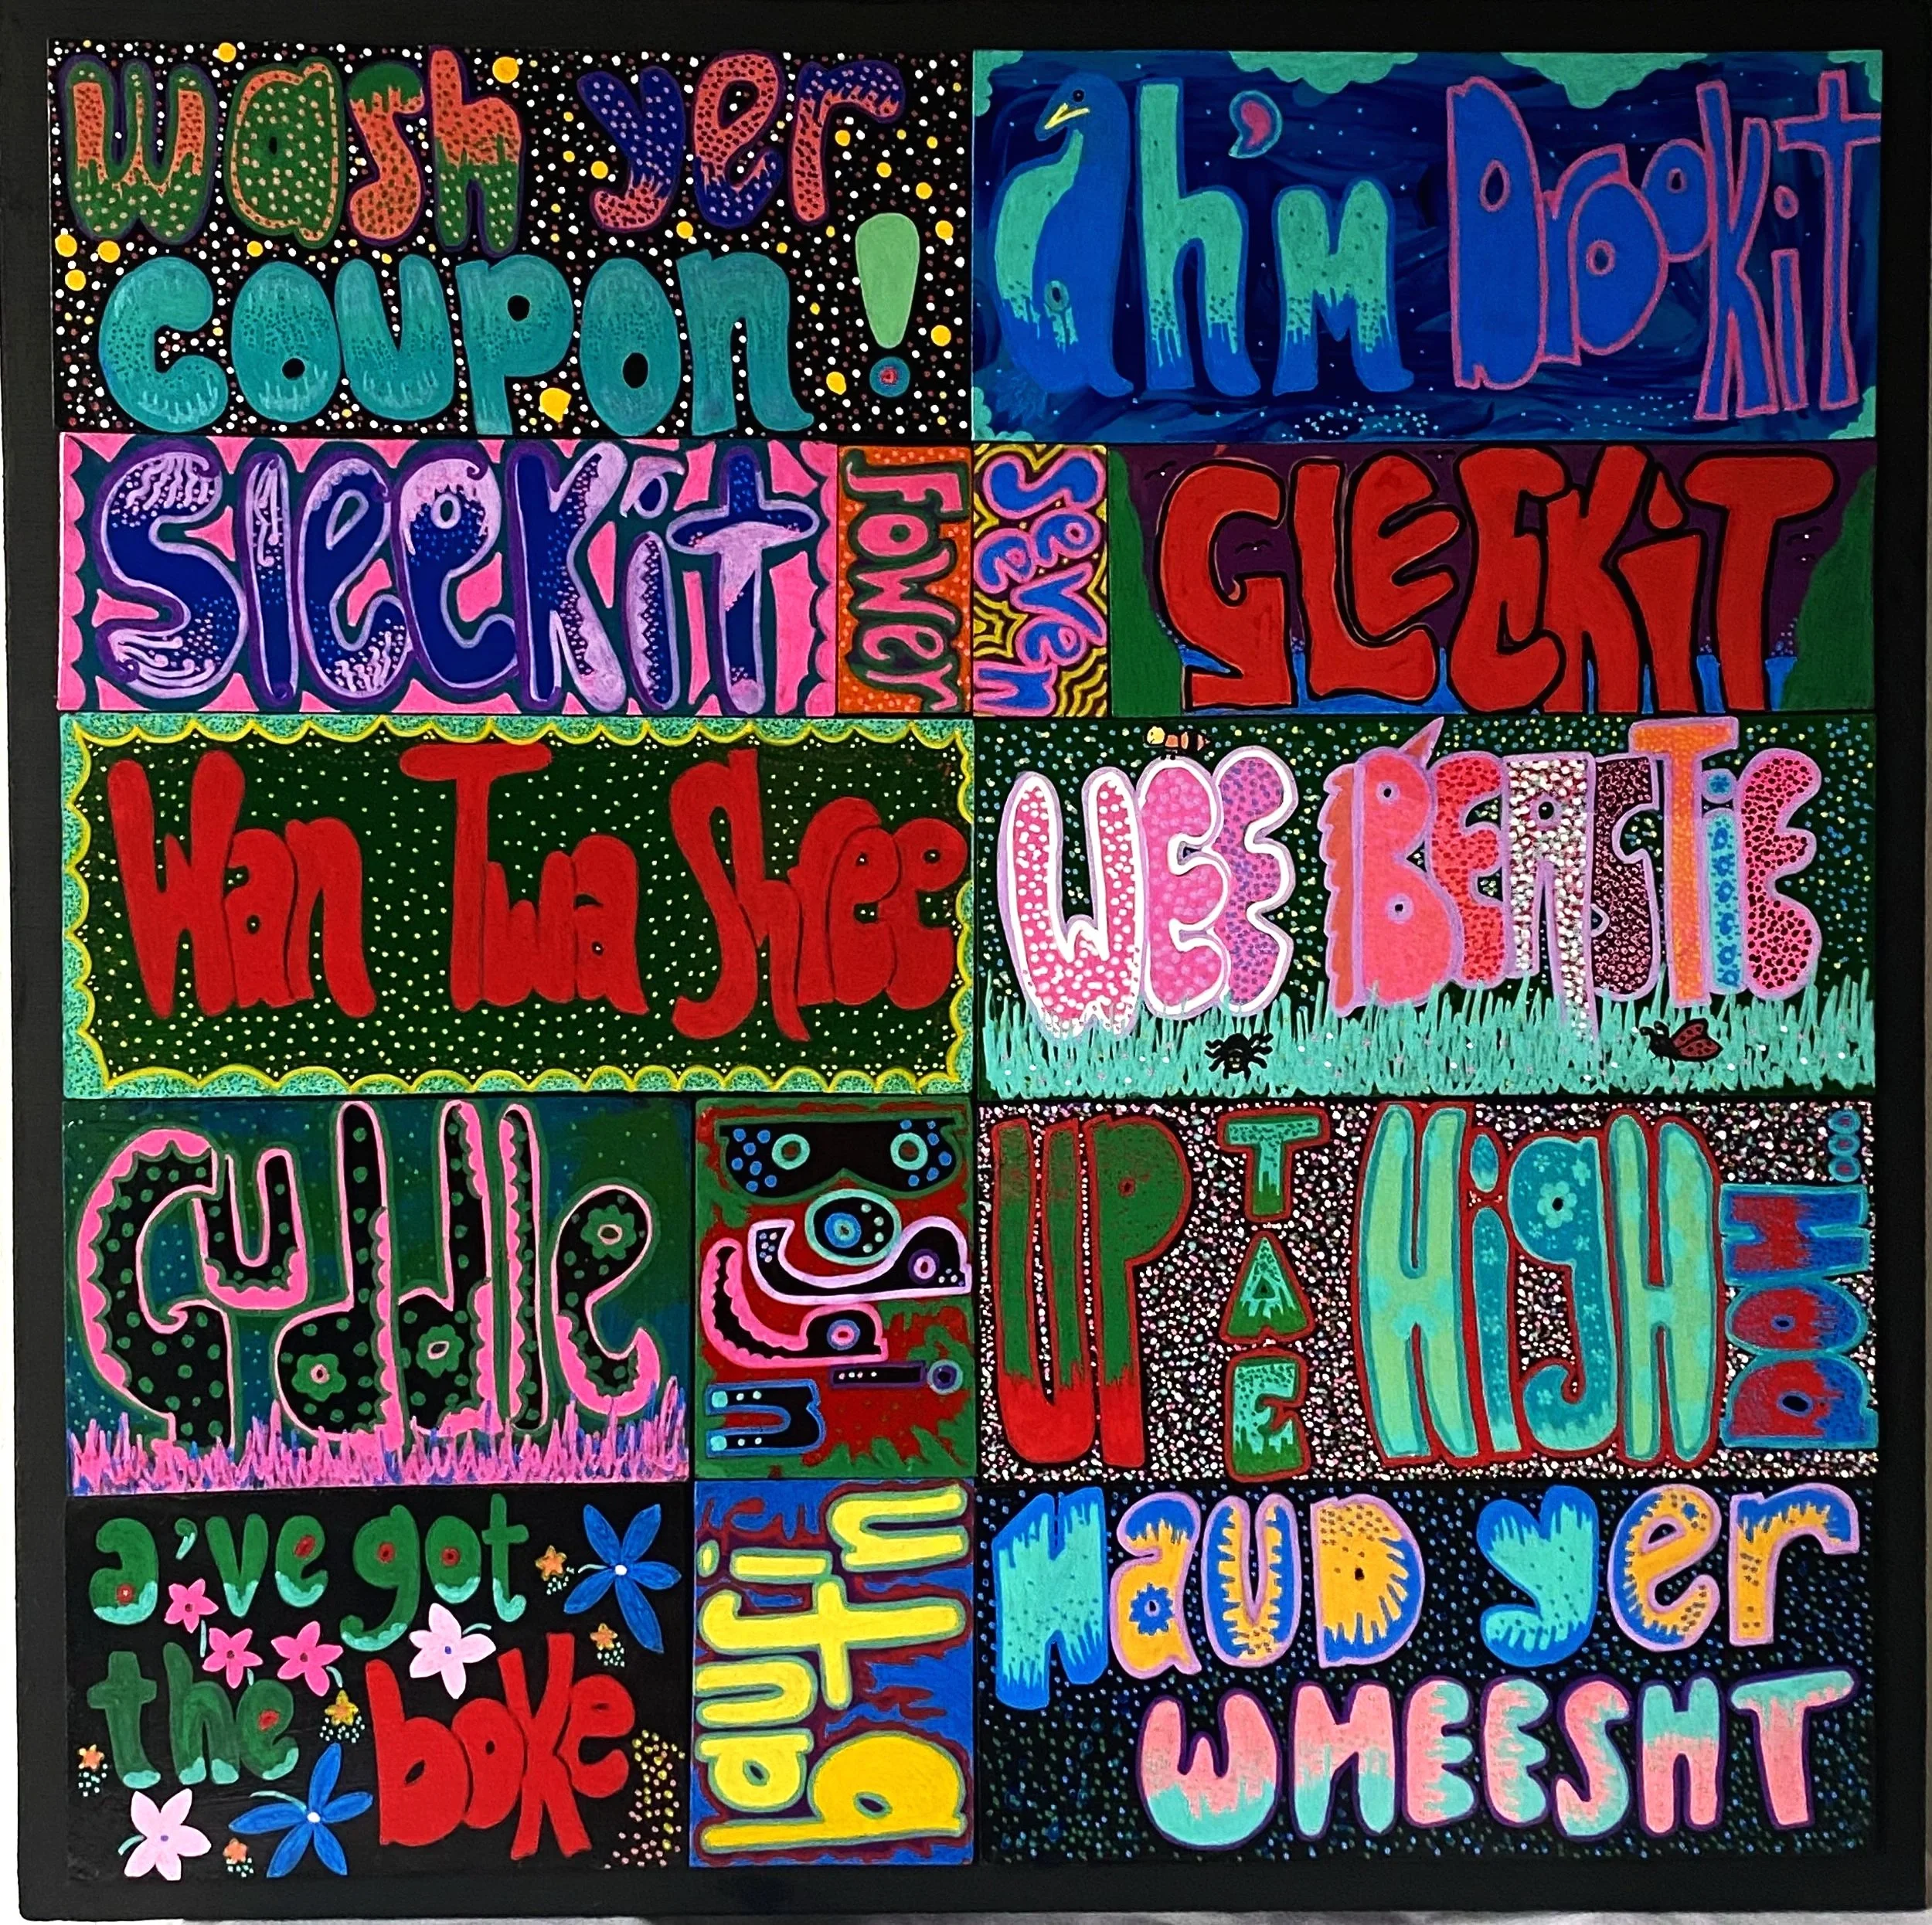 wash yer
coupon!
ah'm Drookit
Sleekit
Fower
Seeven
GLECKiT
Wan Twa Shree
WEE BEASTiE
Guddle
Boggin
UP TAE HigH DOH...
a've got
the boke
baufin
HAUD yer
WHEESHT